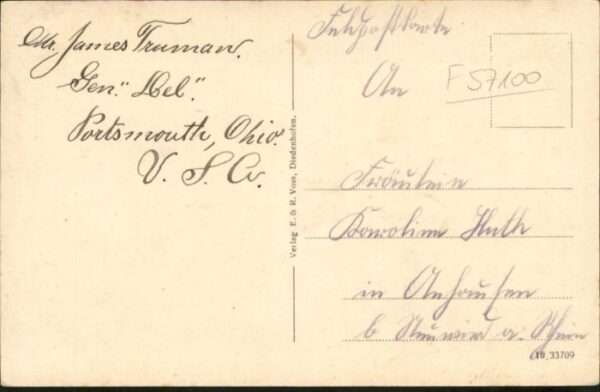 Mr. James Truman.
Gen." Del".
Portsmouth, Ohio.
U. S. A.
Verlag E. & R. Voss, Diedenhofen.
Feldpostkarte
An
F 57100
Fräulein
Karoline Huth
in Anhausen
b Neuwied a. Rhein
10,33709